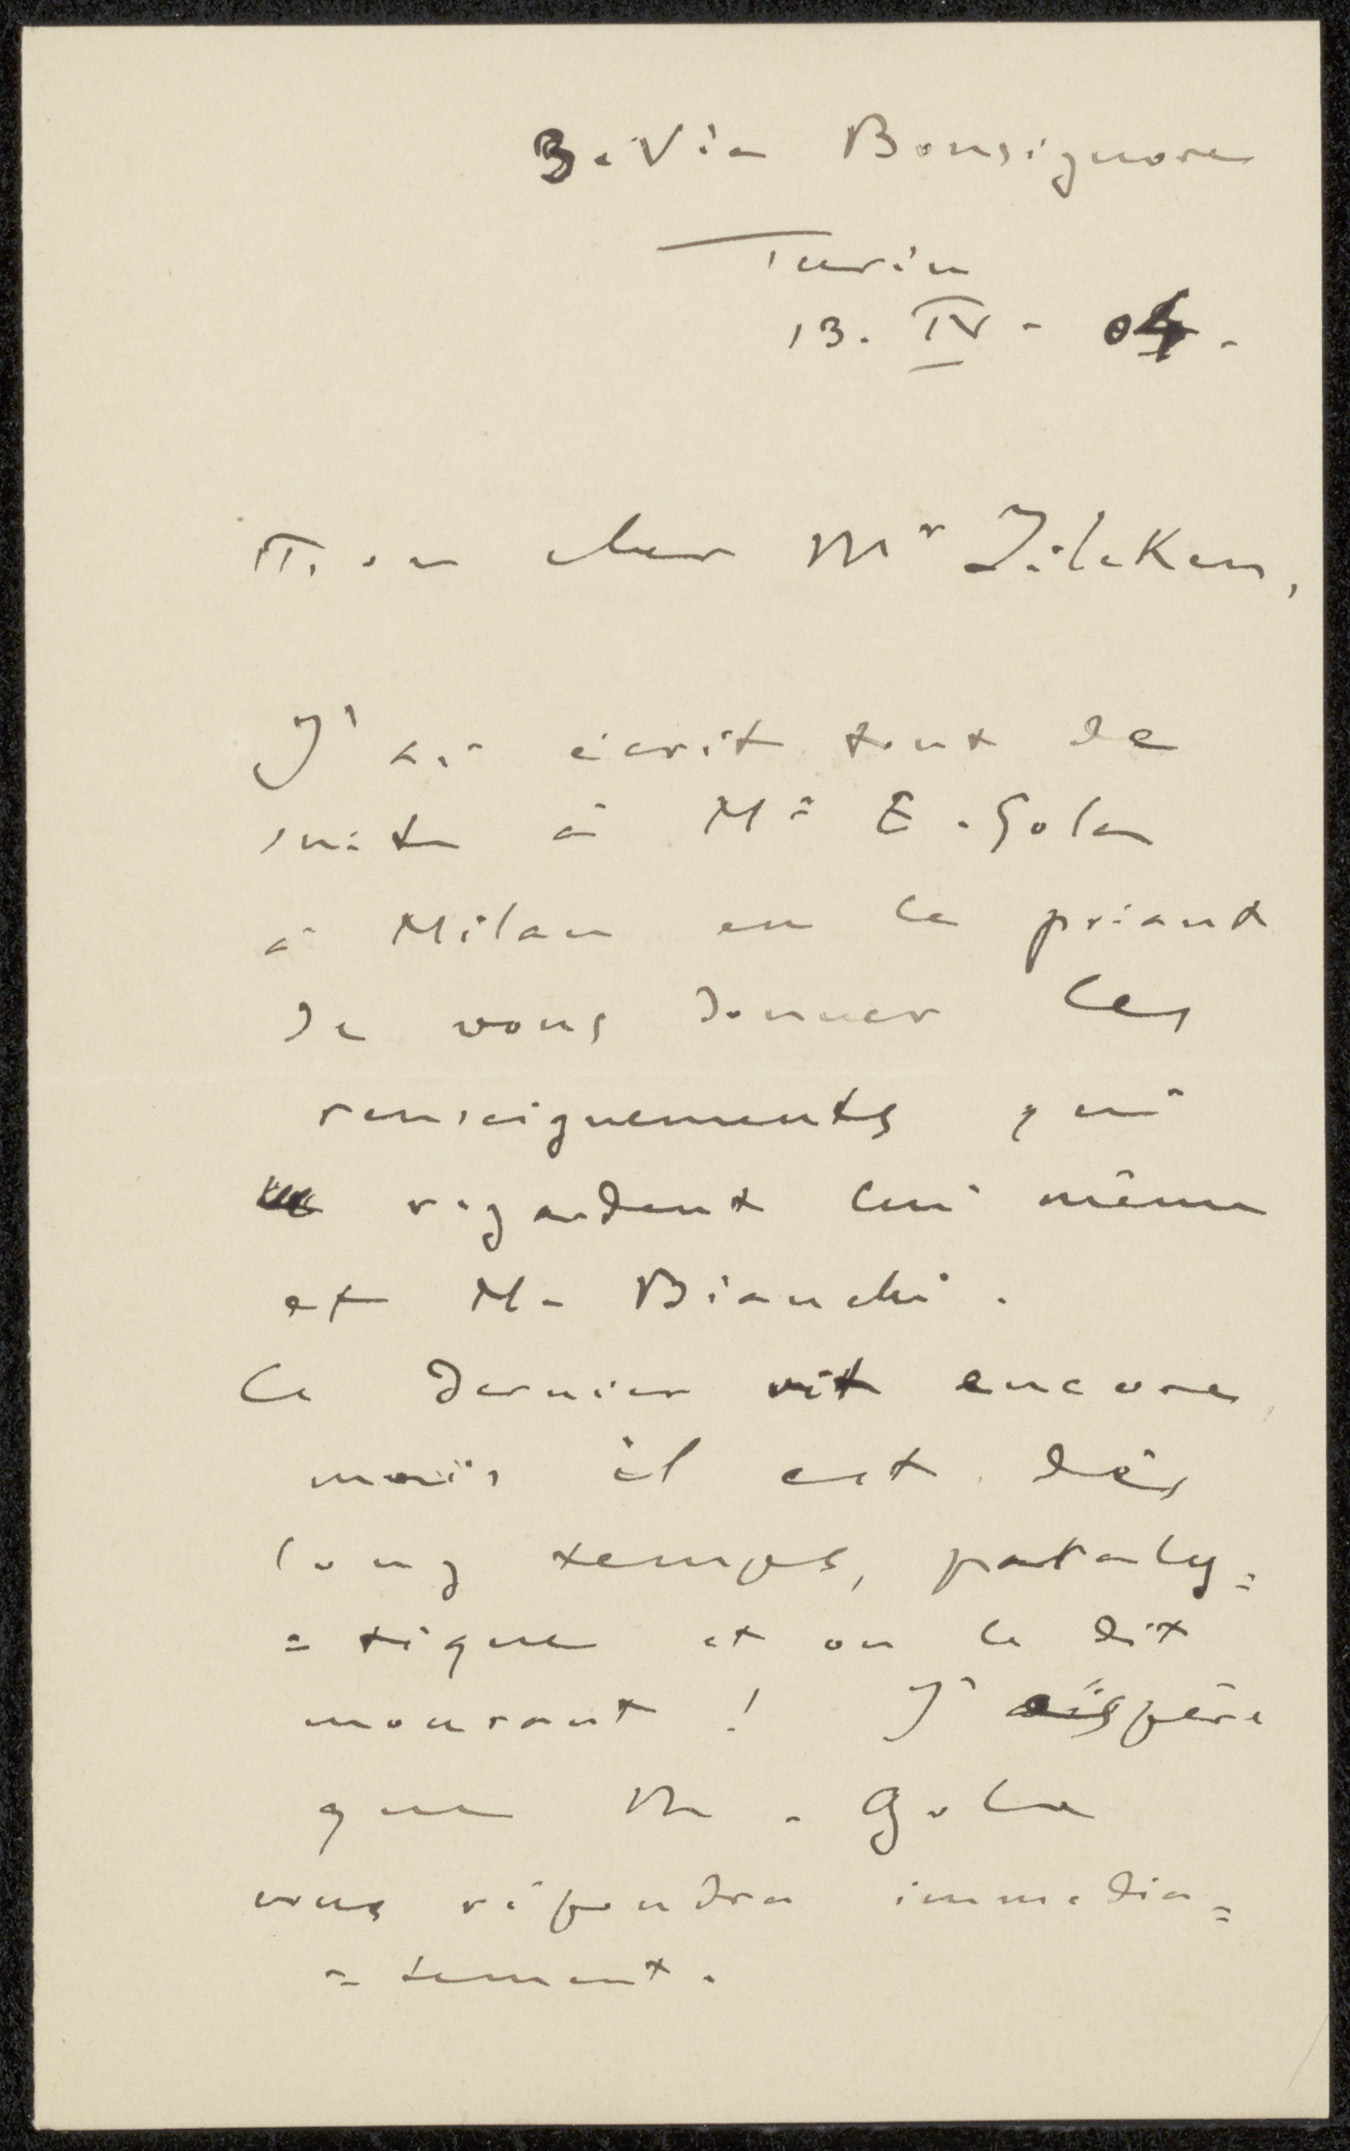 3. Via Bonsignore
Turin
13. IV - 04.
Mon cher Mr Zilcken,
J'ai écrit tout de
suite à Mr E. Gola
à Milan en le priant
de vous donner les
renseignements qui
regardent lui même
et M. Bianchi.
Ce dernier vit encore
mais il est dès
long temps, paraly=
=tique et on le dit
mourant ! J'éspère
que M. Gola
vous répondra immedia=
=tement.